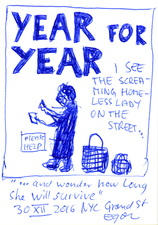 YEAR FOR
YEAR
I SEE
THE SCREA-
MING HOME-
LESS LADY
ON THE
STREET...
PLEASE
HELP!
"...and wonder how long
she will survive"
30 XII 2016 NYC Grand St
egon